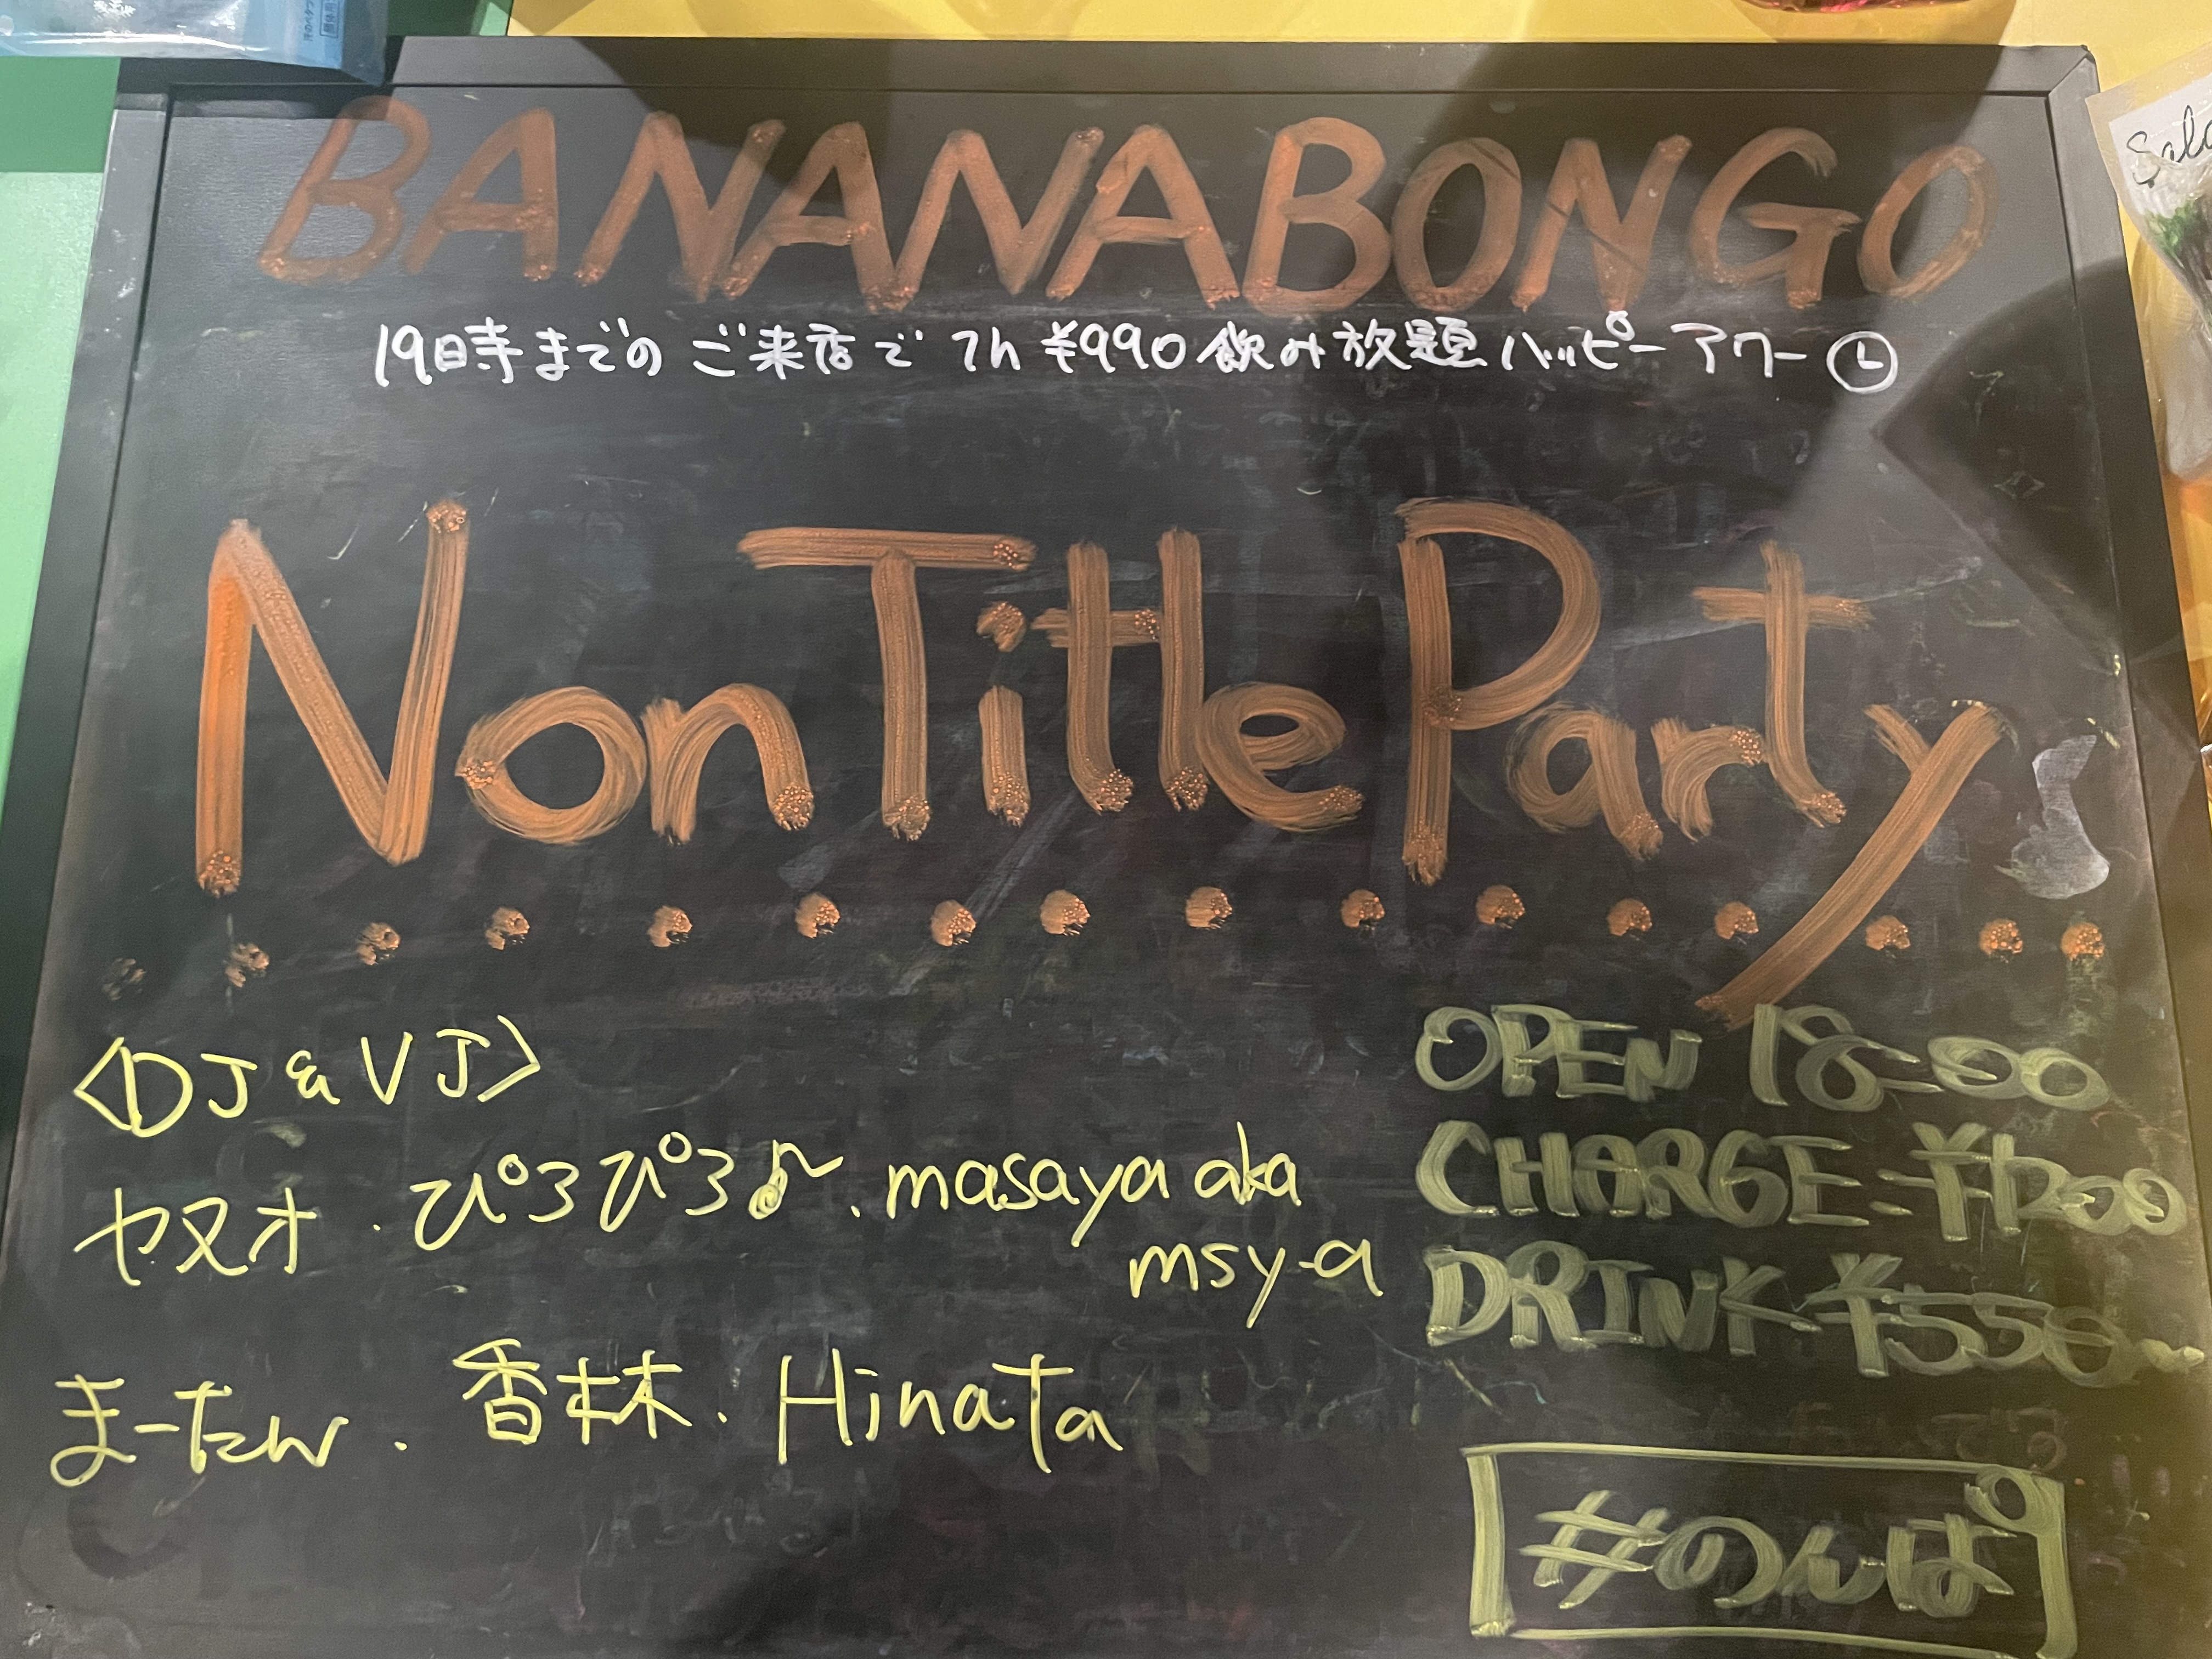 BANANABONGO
19時までのご来店で 1h ¥990 飲み放題ハッピーアワー
Non Title Party
<DJ & VJ>
ヤヌオ . ぴろぴろ♪ . masaya aka
msy-a
まーたん . 香林 . Hinata
OPEN 18:00
CHARGE : ¥1200
DRINK ¥550~
#のんぱ